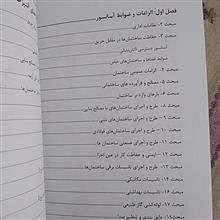 فصل اول: الزامات و ضوابط آسانسور
مبحث ۲- نظامات اداری
مبحث ۳- حفاظت ساختمان‌ها در مقابل حریق
آسانسور دسترسی آتش‌نشانی
ضوابط فضاها و ساختمان‌های خاص
مبحث ۴- الزامات عمومی ساختمان
مبحث ۵- مصالح و فرآورده های ساختمانی
مبحث ۶- بارهای وارده بر ساختمان
مبحث ۸- طرح و اجرای ساختمان‌های با مصالح بنایی
مبحث ۹- طرح و اجرای ساختمان‌های بتنی
مبحث ۱۰- طرح و اجرای ساختمان‌های فولادی
مبحث ۱۱- طرح و اجرای صنعتی ساختمان ها
مبحث ۱۲- ایمنی و حفاظت کار در حین اجرا
مبحث ۱۳- طرح و اجرای تاسیسات برقی ساختمان‌ها
مبحث ۱۴- تاسیسات مکانیکی
مبحث ۱۶- تاسیسات بهداشتی
مبحث ۱۷- لوله‌کشی گاز طبیعی
مبحث ۱۸- عایق بندی و تنظیم صدا